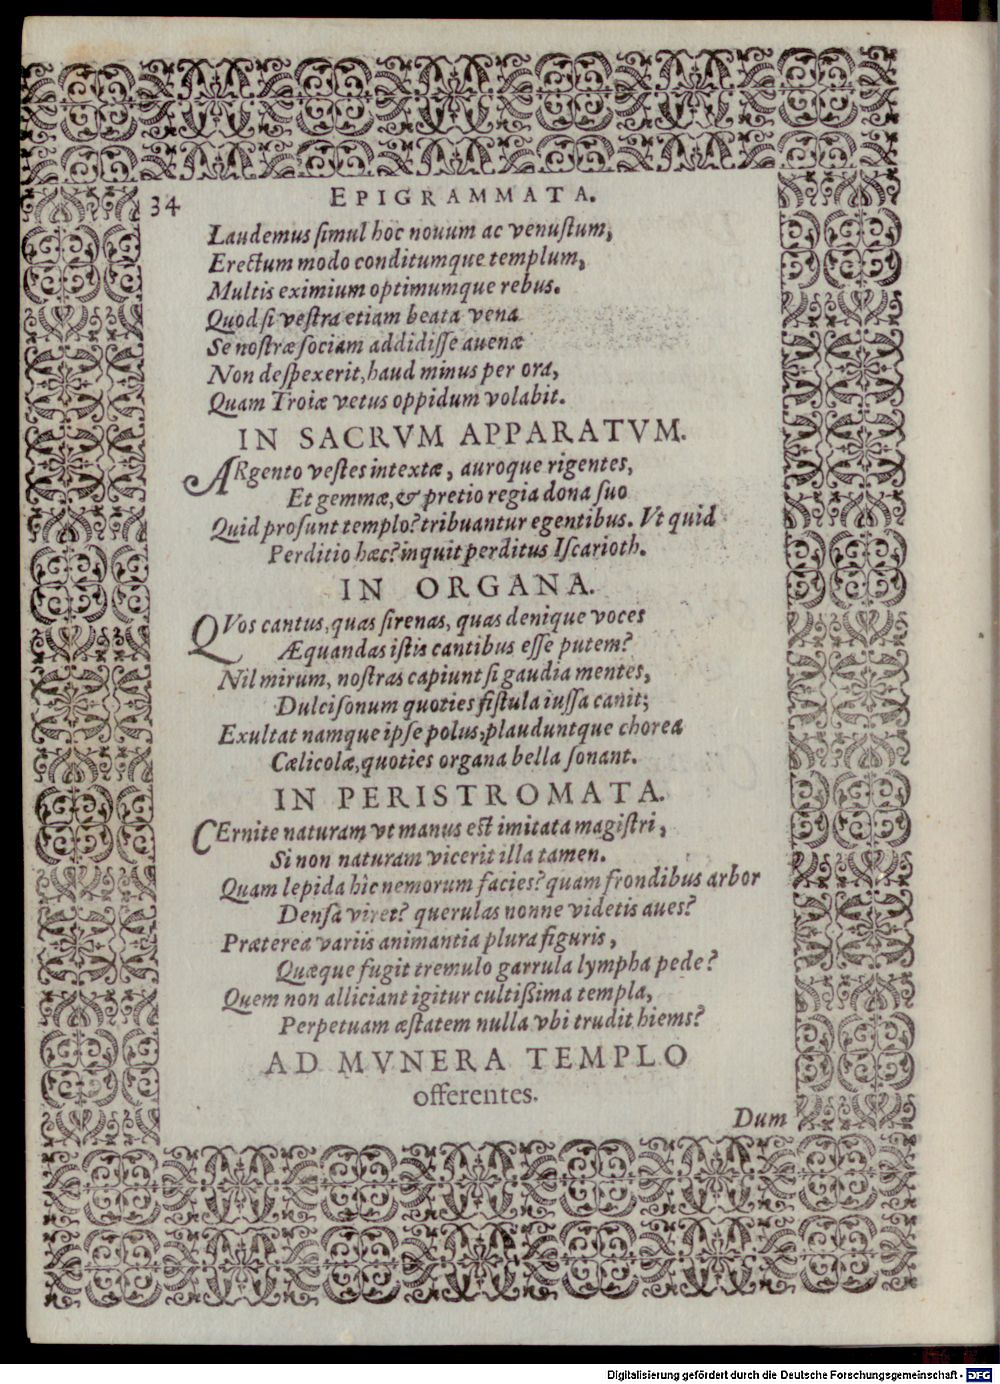 34 EPIGRAMMATA.
Laudemus ſimul hoc nouum ac venuſtum,
Erectum modo conditumque templum,
Multis eximium optimumque rebus.
Quod ſi veſtra etiam beata vena
Se noſtræ ſociam addidiſſe auenæ
Non deſpexerit, haud minus per ora,
Quam Troiæ vetus oppidum volabit.
IN SACRVM APPARATVM.
ARgento veſtes intextæ, auroque rigentes,
Et gemmæ, & pretio regia dona ſuo
Quid proſunt templo? tribuantur egentibus. Vt quid
Perditio hæc? inquit perditus Iſcarioth.
IN ORGANA.
QVos cantus, quas ſirenas, quas denique voces
Æquandas iſtis cantibus eſſe putem?
Nil mirum, noſtras capiunt ſi gaudia mentes,
Dulciſonum quoties fiſtula iuſſa canit;
Exultat namque ipſe polus, plauduntque chorea
Cælicolæ, quoties organa bella ſonant.
IN PERISTROMATA.
CErnite naturam vt manus eſt imitata magiſtri,
Si non naturam vicerit illa tamen.
Quam lepida hîc nemorum facies? quam frondibus arbor
Denſa viret? querulas nonne videtis aues?
Præterea variis animantia plura figuris,
Quæque fugit tremulo garrula lympha pede?
Quem non alliciant igitur cultißima templa,
Perpetuam æſtatem nulla vbi trudit hiems?
AD MVNERA TEMPLO
offerentes.
Dum
Digitalisierung gefördert durch die Deutsche Forschungsgemeinschaft - DFG